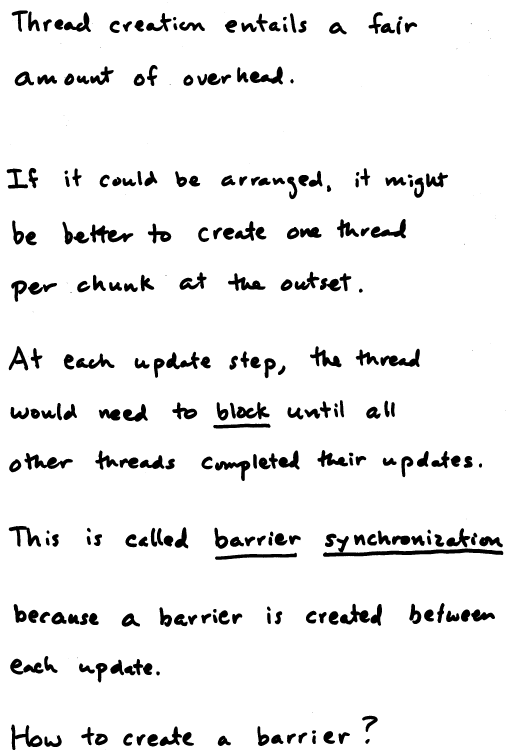 Thread creation entails a fair
amount of overhead.
If it could be arranged, it might
be better to create one thread
per chunk at the outset.
At each update step, the thread
would need to block until all
other threads completed their updates.
This is called barrier synchronization
because a barrier is created between
each update.
How to create a barrier?